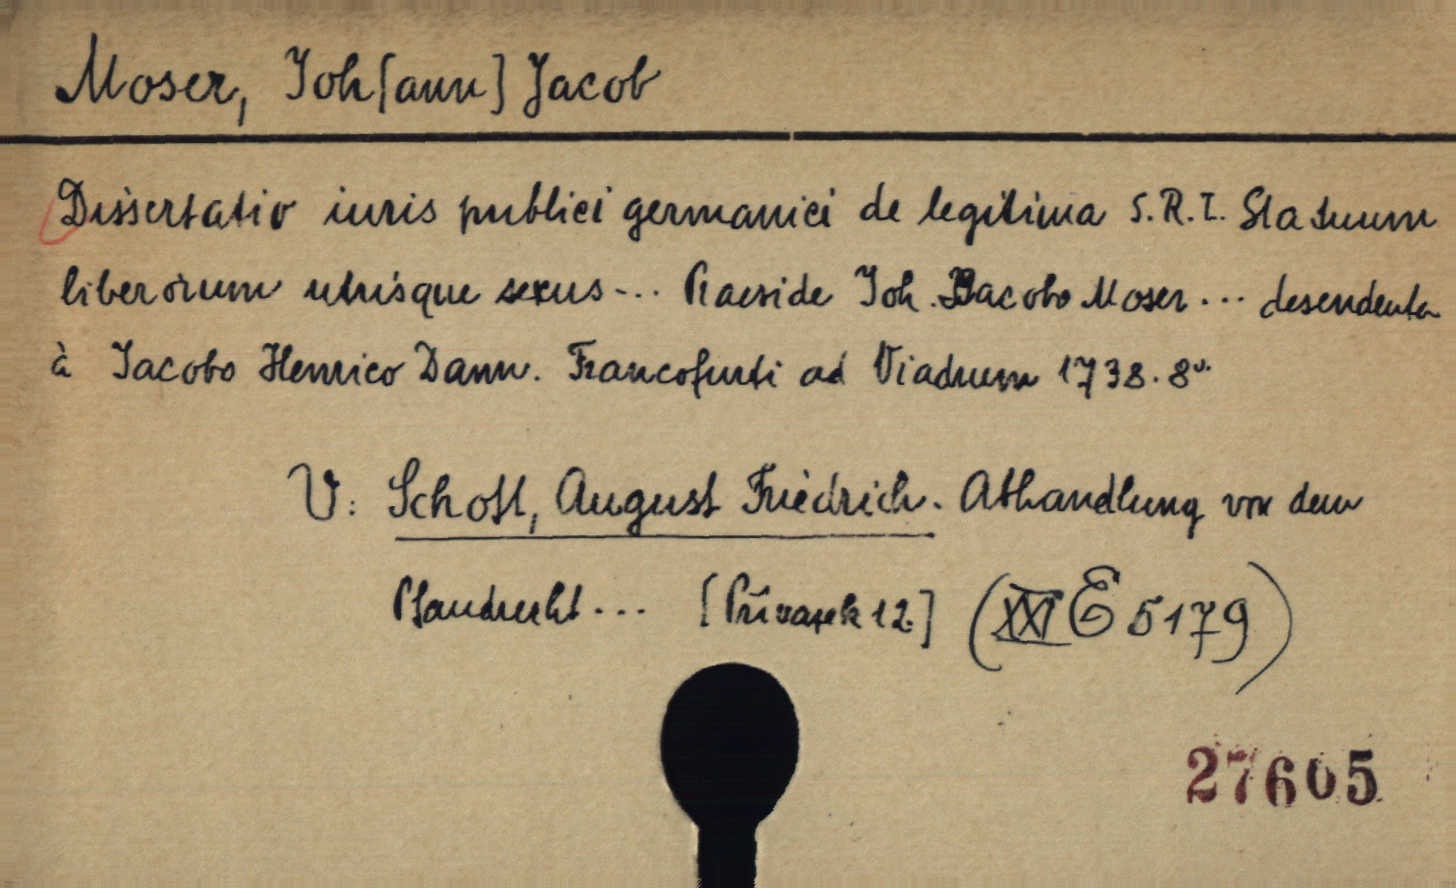 Moser, Joh[ann] Jacob
Dissertatio iuris publici germanici de legitima S.R.I. Statuum
liberorum utrisque sexus... Praeside Joh. Jacobo Moser... desendente
à Jacobo Henrico Dann. Francofurti ad Viadrum 1738. 8º.
V: Schott, August Friedrich. Abhandlung von dem
Pfandrecht... [Přívazek 12.] (XXI E 5179)
27605